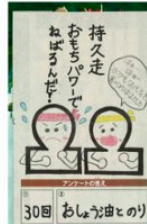 持久走
おもちパワーで
ねばるんだ!
アンケートの答え
30回
おしょう油とのり